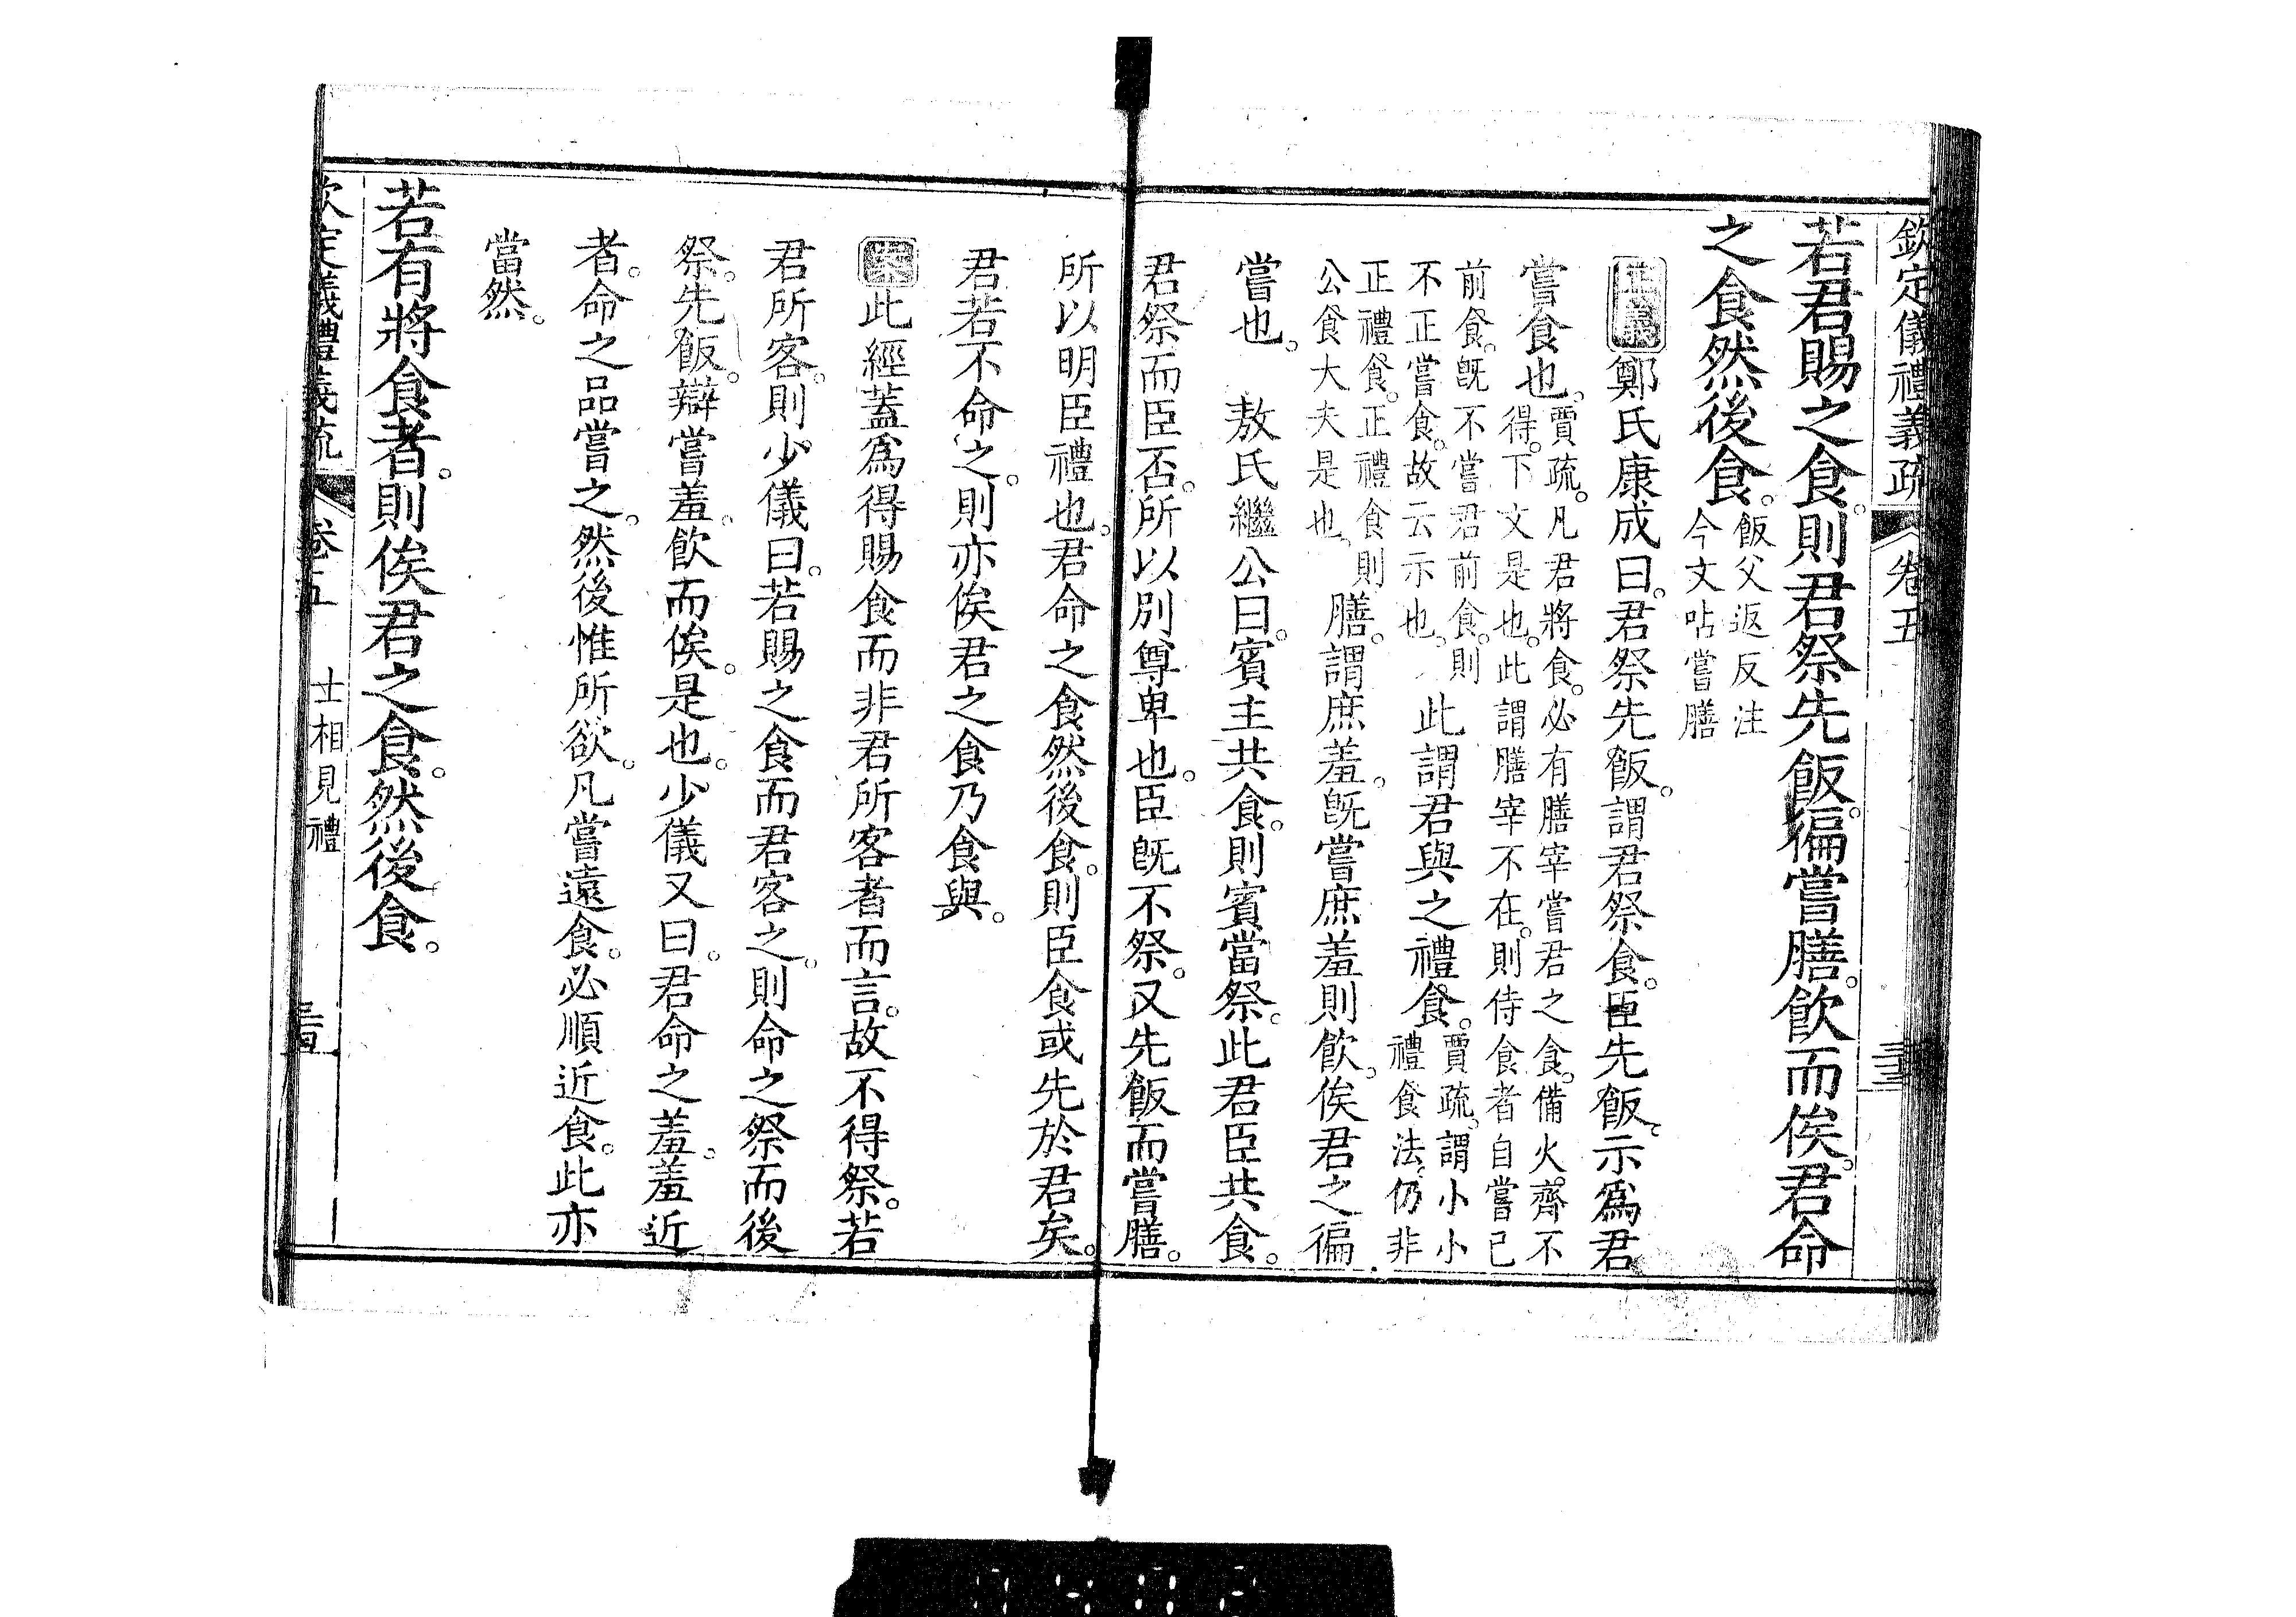 欽定儀禮義疏 卷五
若君賜之食。則君祭先飯。徧嘗膳。飲而俟。君命
之食然後食。飯父返反注
今文呫嘗膳
正義鄭氏康成曰。君祭先飯。謂君祭食。臣先飯。示爲君
嘗食也。賈疏。凡君將食。必有膳宰嘗君之食。備火齊不
得。下文是也。此謂膳宰不在。則侍食者自嘗己
前食。既不嘗君前食。則
不正嘗食。故云示也。此謂君與之禮食。賈疏。謂小小
禮食法。仍非
正禮食。正禮食則
公食大夫是也。膳。謂庶羞。既嘗庶羞則飲。俟君之徧
嘗也。 敖氏繼公曰。賓主共食。則賓當祭。此君臣共食。
君祭而臣否。所以別尊卑也。臣既不祭。又先飯而嘗膳。
所以明臣禮也。君命之食然後食。則臣食或先於君矣。
君若不命之。則亦俟君之食乃食與。
案此經蓋爲得賜食而非君所客者而言。故不得祭。若
君所客。則少儀曰。若賜之食而君客之。則命之祭而後
祭。先飯。辯嘗羞。飲而俟。是也。少儀又曰。君命之羞。羞近
者。命之品嘗之。然後惟所欲。凡嘗遠食。必順近食。此亦
當然。
若有將食者。則俟君之食。然後食。
欽定儀禮義疏 卷五 士相見禮